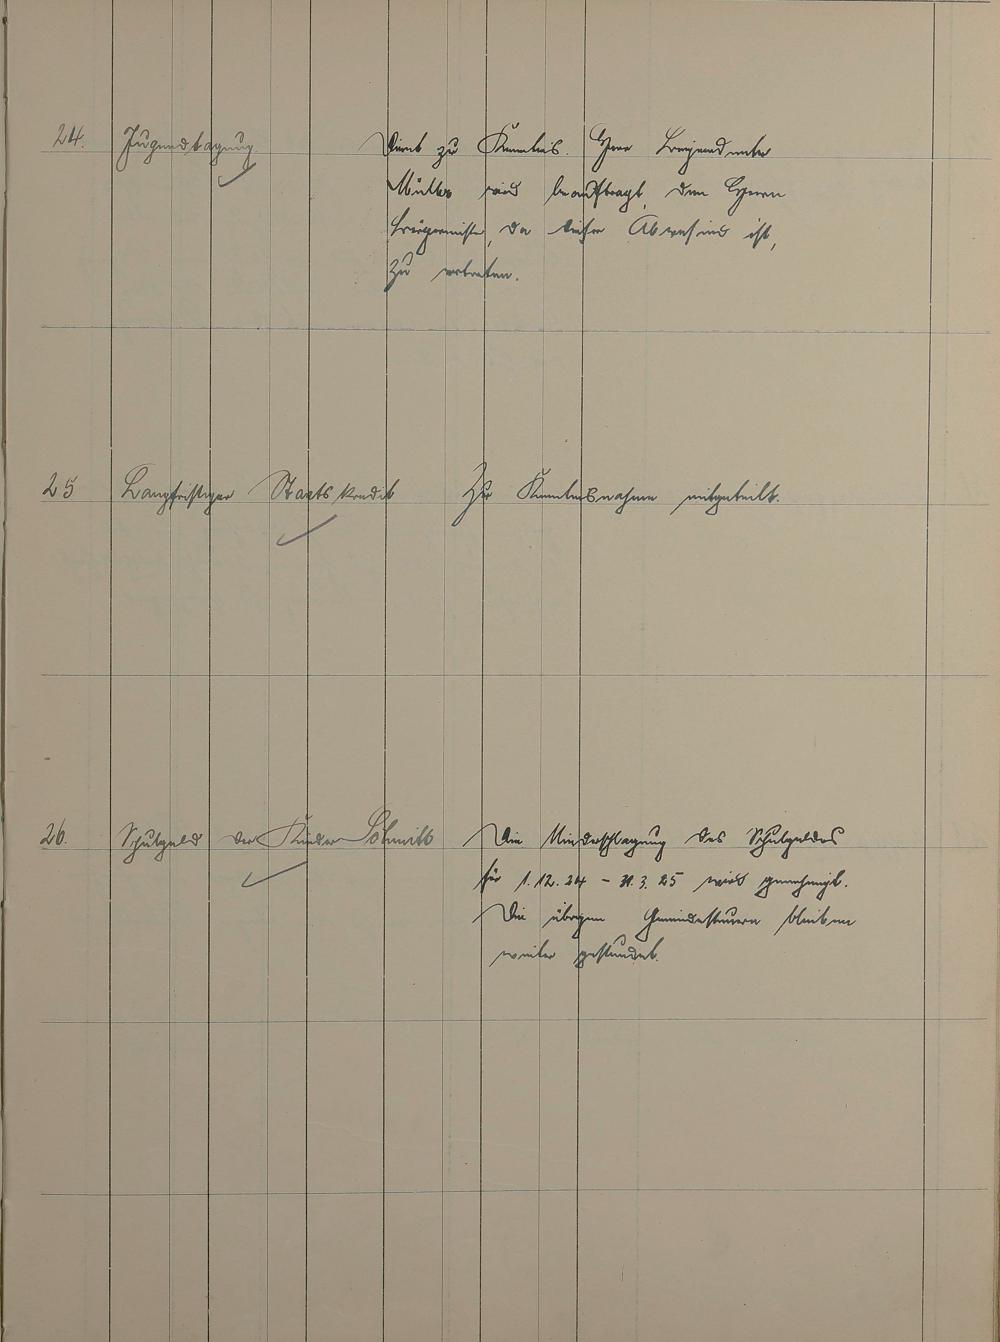 24. Jugendtagung. Dient zu Kenntnis. Herr
Müller wird beauftragt, den Herrn
Bürgermeister, da dieser Abwesend ist,
zu vertreten.
25 Langfristiger Staatskredit Zur Kenntnisnahme mitgeteilt.
26. Schulgeld der Kinder Schmitt Die Niederschlagung des Schulgeldes
für 1.12.24 - 31.3.25 wird genehmigt.
Die übrigen Gemeindesteuern bleiben
weiter gestundet.